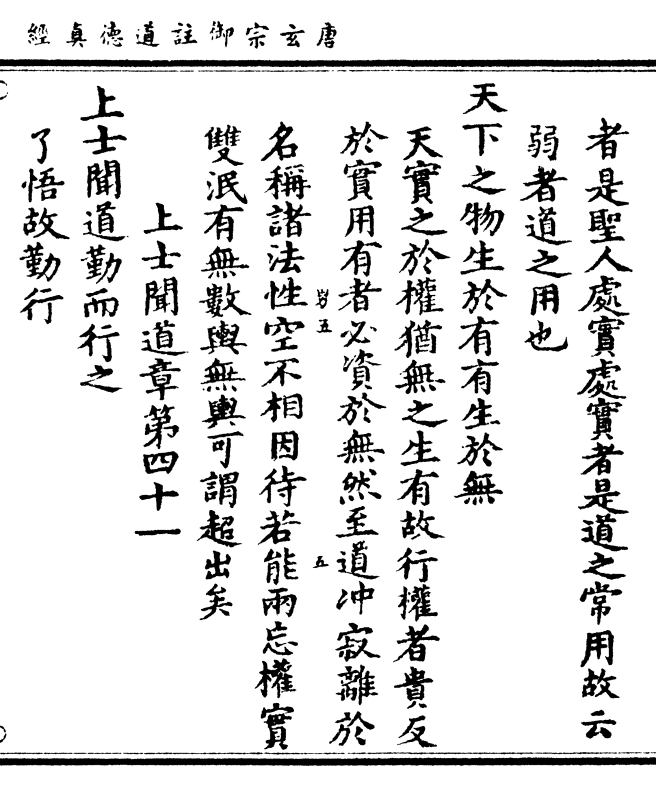 唐玄宗御註道德真經
者是聖人處實處實者是道之常用故云
弱者道之用也
天下之物生於有有生於無
天實之於權猶無之生有故行權者貴反
於實用有者必資於無然至道冲寂離於
名稱諸法性空不相因待若能兩忘權實
雙泯有無數輿無輿可謂超出矣
上士聞道章第四十一
上士聞道勤而行之
了悟故勤行
五
五